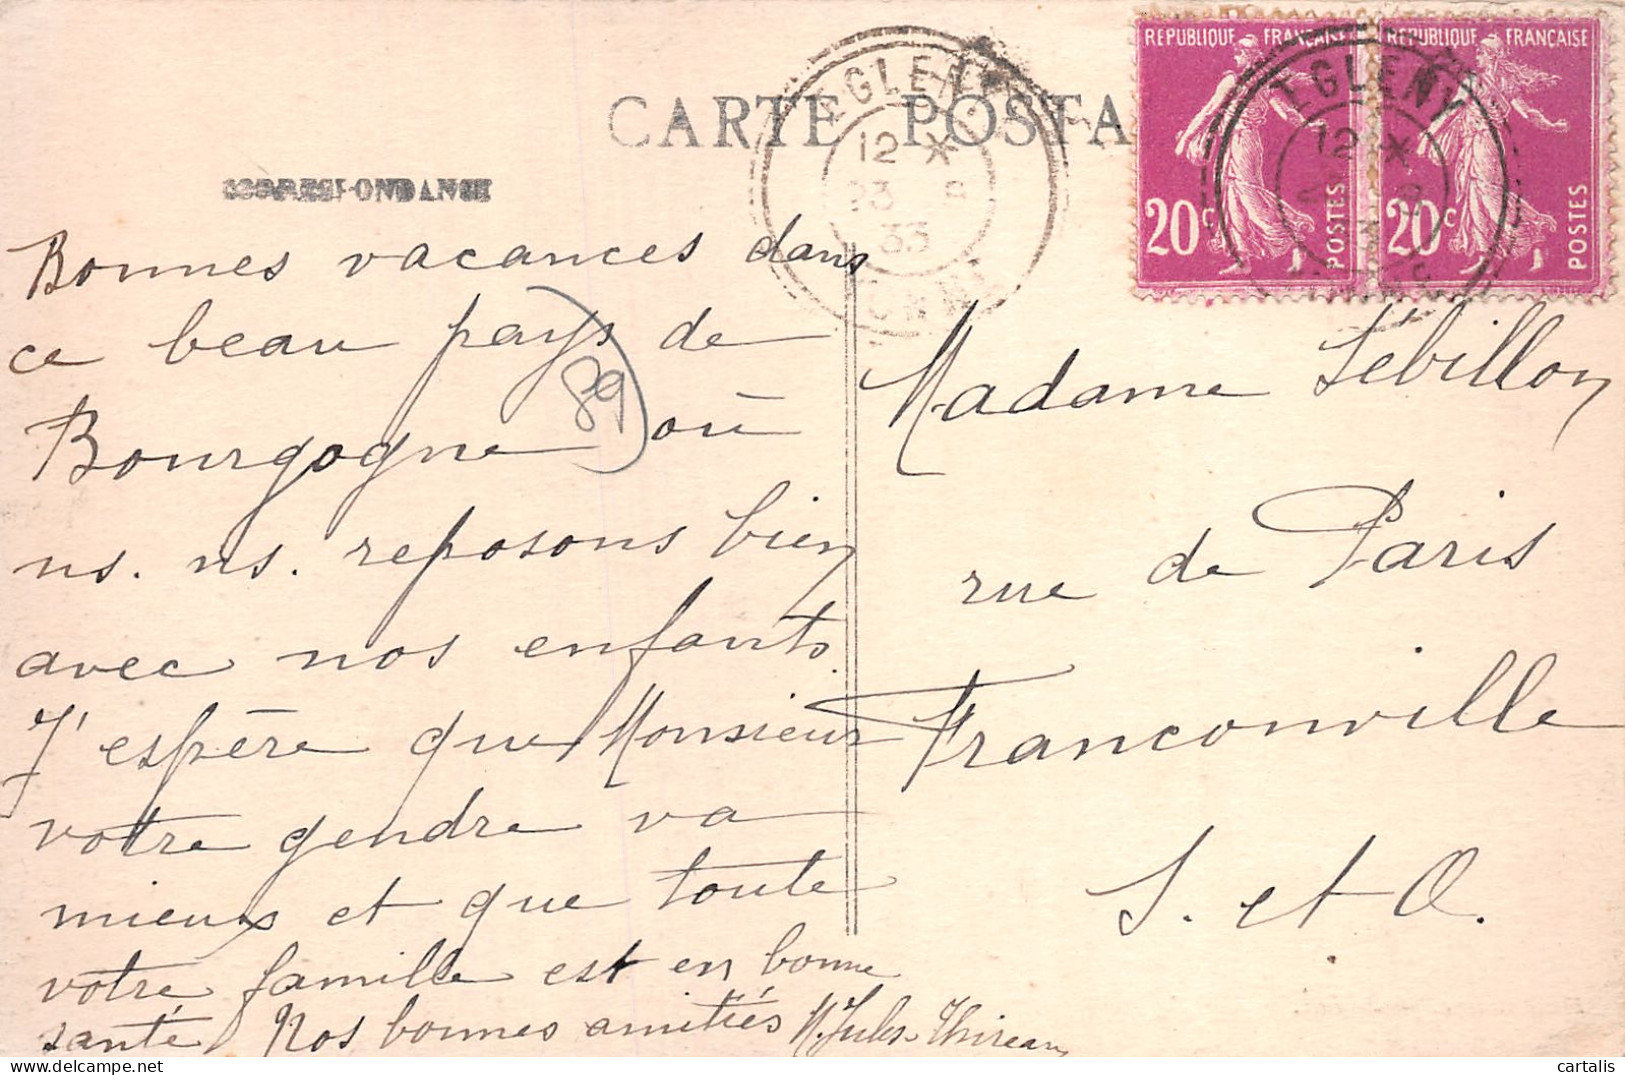 CARTE POSTA
CORRESPONDANCE
EGLENY
12 *
23 8
33
YONNE
REPUBLIQUE FRANÇAISE
20c
POSTES
REPUBLIQUE FRANÇAISE
20c
POSTES
EGLENY
12 *
Bonnes vacances dans
ce beau pays de
Bourgogne où
ns. ns. reposons bien
avec nos enfants.
J'espère que Monsieur
votre gendre va
mieux et que toute
votre famille est en bonne
santé. Nos bonnes amitiés M. Jules Thireau
89
Madame Sébillon
rue de Paris
Franconville
S. et O.
cartalis